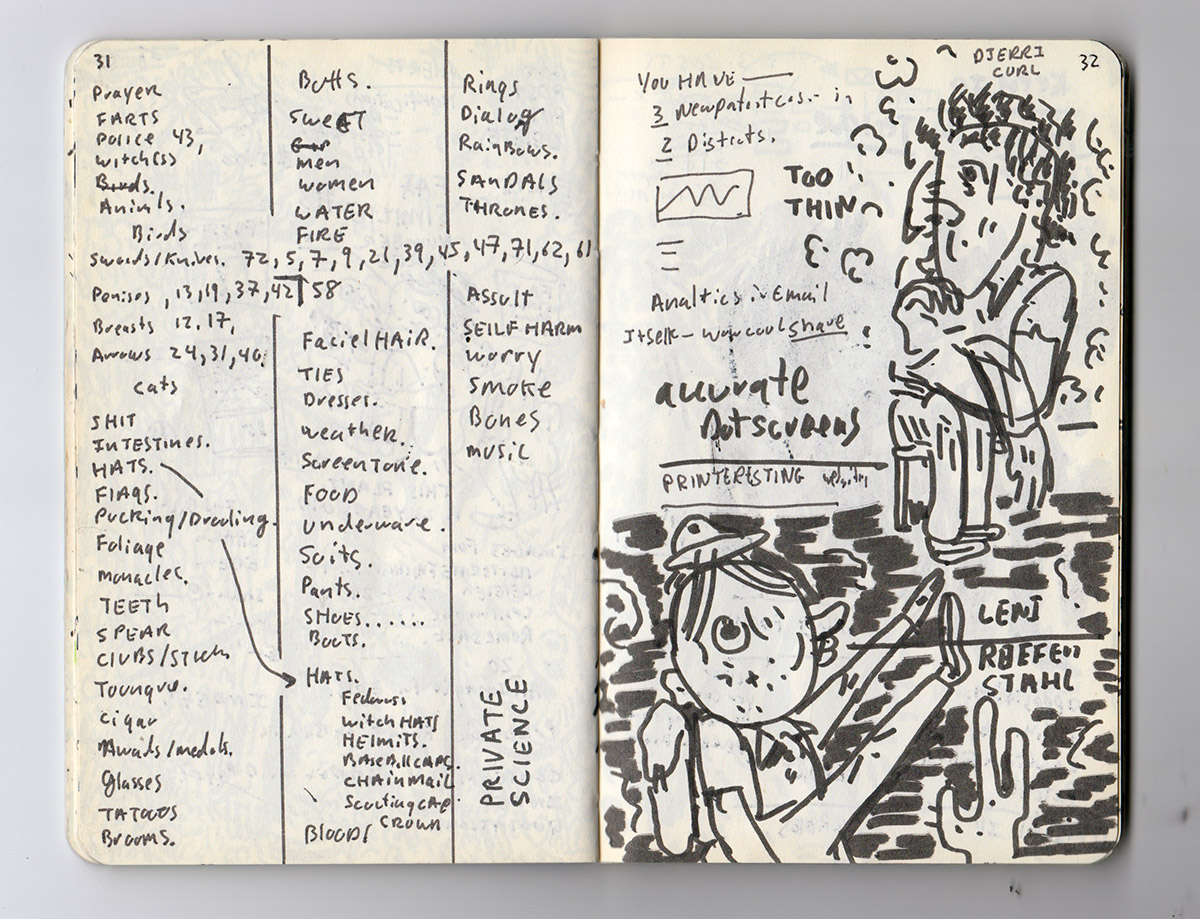 31
Prayer
FARTS
POLICE 43,
witchess
Birds.
Animls.
Birds
Swords/Knives. 72, 5, 7, 9, 21, 39, 45, 47, 71, 62, 61
Penises, 13, 19, 37, 42 58
Breasts 12, 17,
Arrows 24, 31, 40,
cats
SHIT
INTESTINES.
HATS.
FlAgs.
Pucking/Drooling.
Foliage
monacles.
TEETH
SPEAR
CLUBS/STICKS
Toungue.
Cigar
Awards/medals.
Glasses
TATOOS
Brooms.
Butts.
SWEET
men
women
WATER
FIRE
Faciel HAIR.
TIES
Dresses.
weather.
Screen Tone.
FOOD
underware.
Suits.
Pants.
SHOES......
BOOTS.
HATS.
Fedoras
witch HATS
HElmITS.
BASEBAll CAPS.
CHAinmAil
Scouting CAP
CROWN
BLOOD!
Rings
Dialog
RainBows.
SANDALS
THRONES.
Assult
SEILF HARM
worry
Smoke
Bones
music
PRIVATE
SCIENCE
32
DJERRI
CURL
YOU HAVE —
3 in
2 Districts.
TOO
THIN
Analtics in Email
Itself — wow cool share
accurate
Dotscreens
PRINTERESTING website
LENI
RIEFEN
STAHL